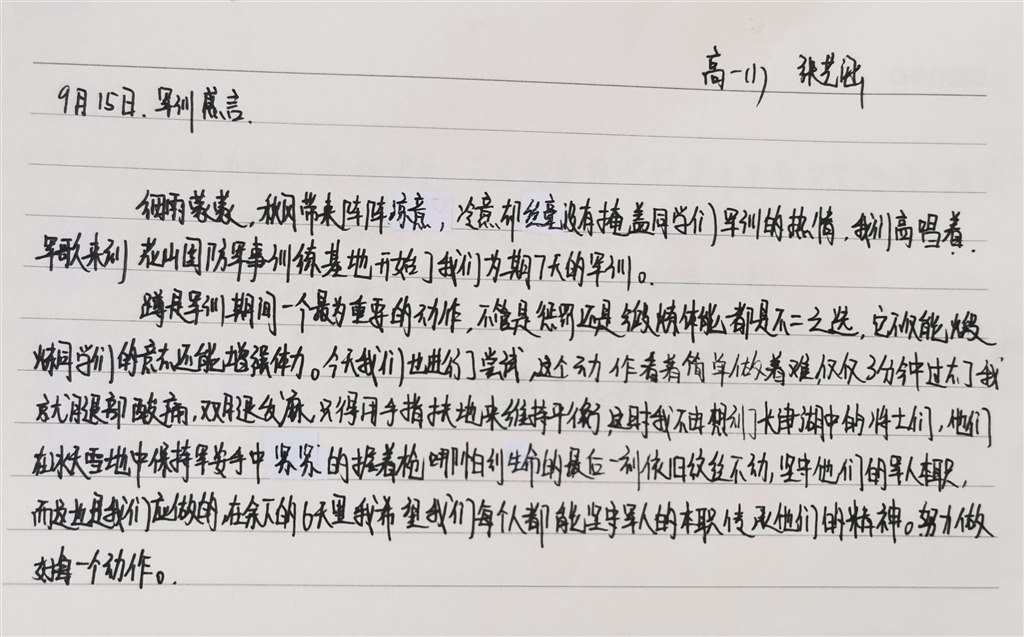 高一(1) 张艺涵
9月15日. 军训感言.
细雨蒙蒙，秋风带来阵阵凉意，冷意却丝毫没有掩盖同学们军训的热情，我们高唱着
军歌来到花山国防军事训练基地开始了我们为期7天的军训。
蹲是军训期间一个最为重要的动作，不管是惩罚还是锻炼体能都是不二之选，它不仅能煅
炼同学们的意志还能增强体力。今天我们也进行了尝试，这个动作看着简单做着难，仅仅3分钟过去了我
就腿部酸痛，双腿发麻，只得用手指扶地来维持平衡，这时我不由想到了长津湖中的将士们，他们
在冰天雪地中保持军姿手中紧紧的握着枪，哪怕到生命的最后一刻依旧纹丝不动，坚守他们的军人本职，
而这也是我们应做的，在余下的6天里我希望我们每个人都能坚守军人的本职传承他们的精神。努力做
好每一个动作。